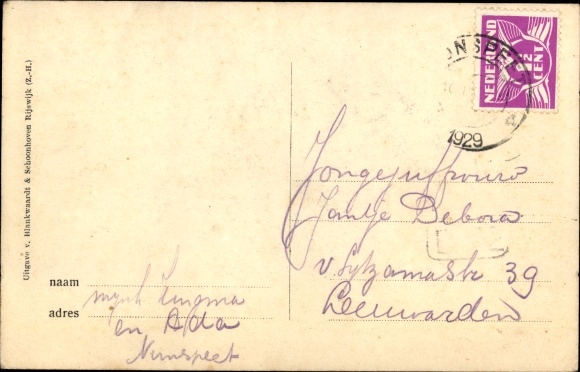 Uitgave v. Blankwaardt & Schoonhoven Rijswijk (Z.-H.)
NEDERLAND
CENT
NSPEET
1929
Jongejuffrouw
Jantje Debora
v Sytzamastr 39
Leeuwarden
naam
adres
en Ada
Nunspeet